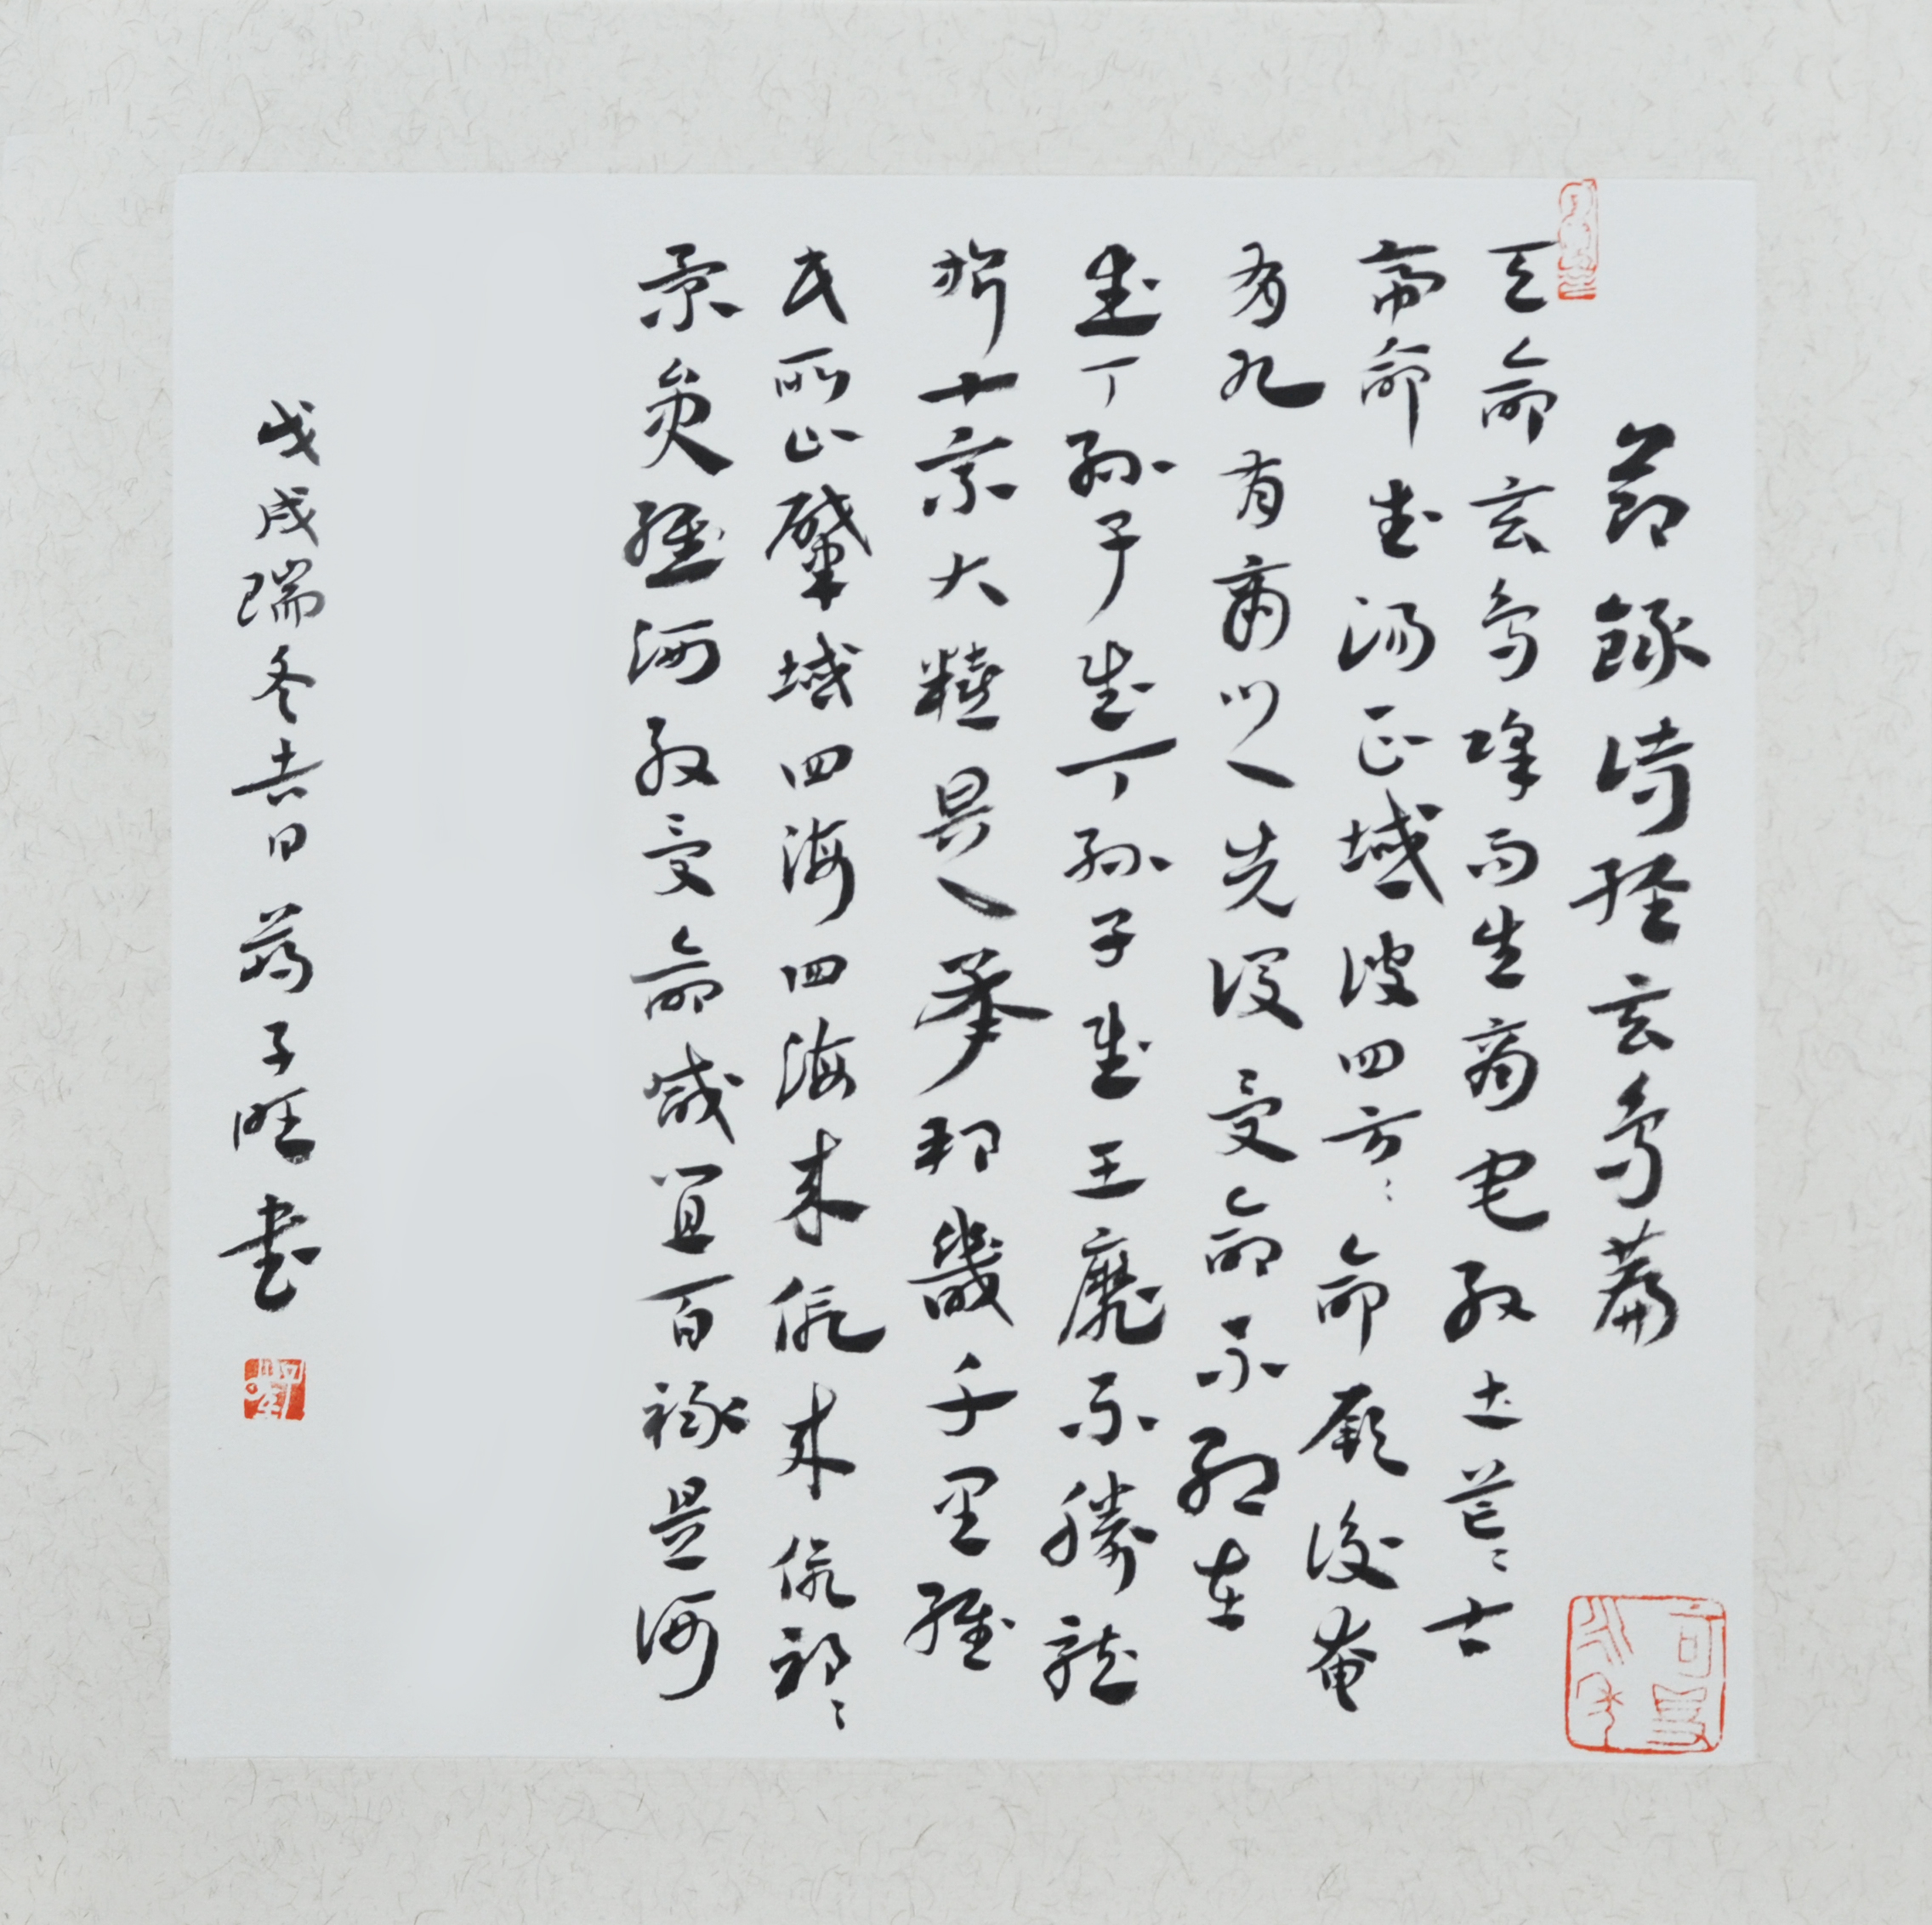 節錄詩經玄鳥篇
天命玄鳥降而生商宅殷土芒〻古
帝命武湯正域彼四方〻命厥後奄
有九有商之先後受命不殆在
武丁孫子武丁孫子武王靡不勝龍
旂十乘大糦是承邦畿千里維
民所止肇域四海四海來假來假祁〻
景員維河殷受命咸宜百祿是何
戊戌瑞冬吉日子旺書